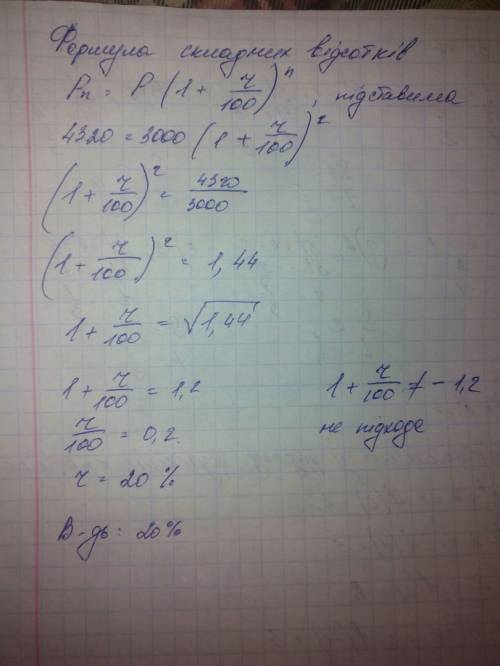 Формула складних відсотків
Pn = P (1 + r/100)^n, підставимо
4320 = 3000 (1 + r/100)^2
(1 + r/100)^2 = 4320/3000
(1 + r/100)^2 = 1,44
1 + r/100 = √1,44
1 + r/100 = 1,2    1 + r/100 ≠ -1,2
r/100 = 0,2    не підходе
r = 20 %
В-дь: 20%